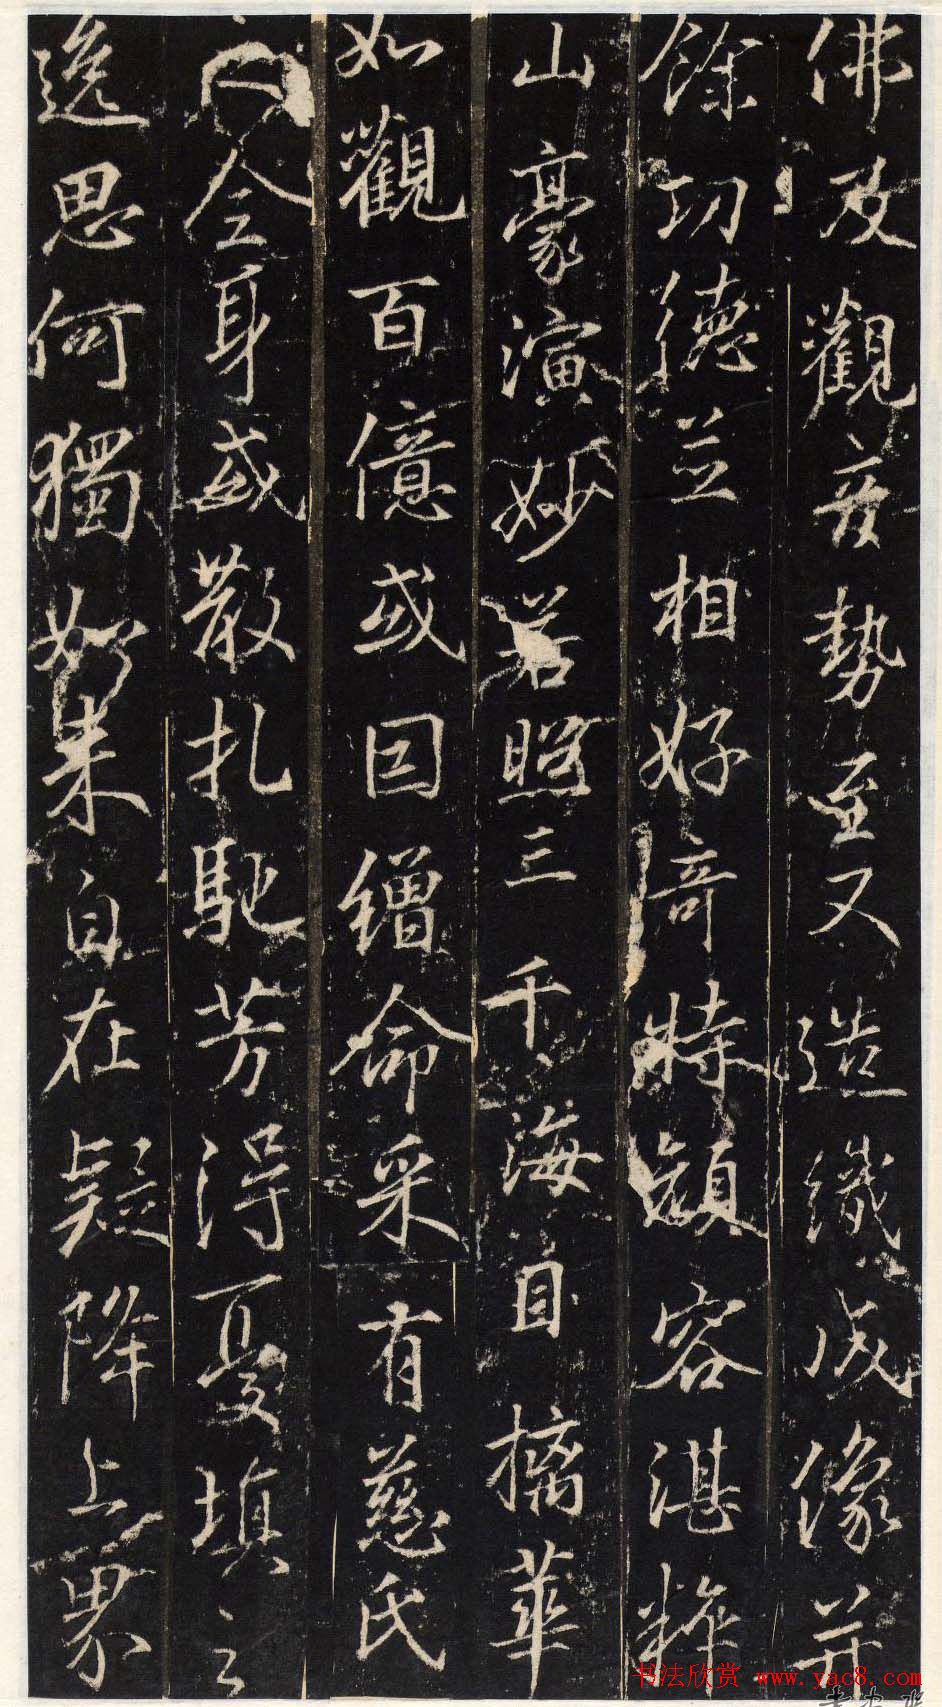 佛及觀音勢至又造織成像并
餘功德並相好奇特顏容湛粹
山豪演妙若照三千海目摛華
如觀百億或因繒命采有慈氏
之全身或散扎馳芳得憂填之
逸思何獨如來自在疑降上界
书法欣赏 www.yac8.com